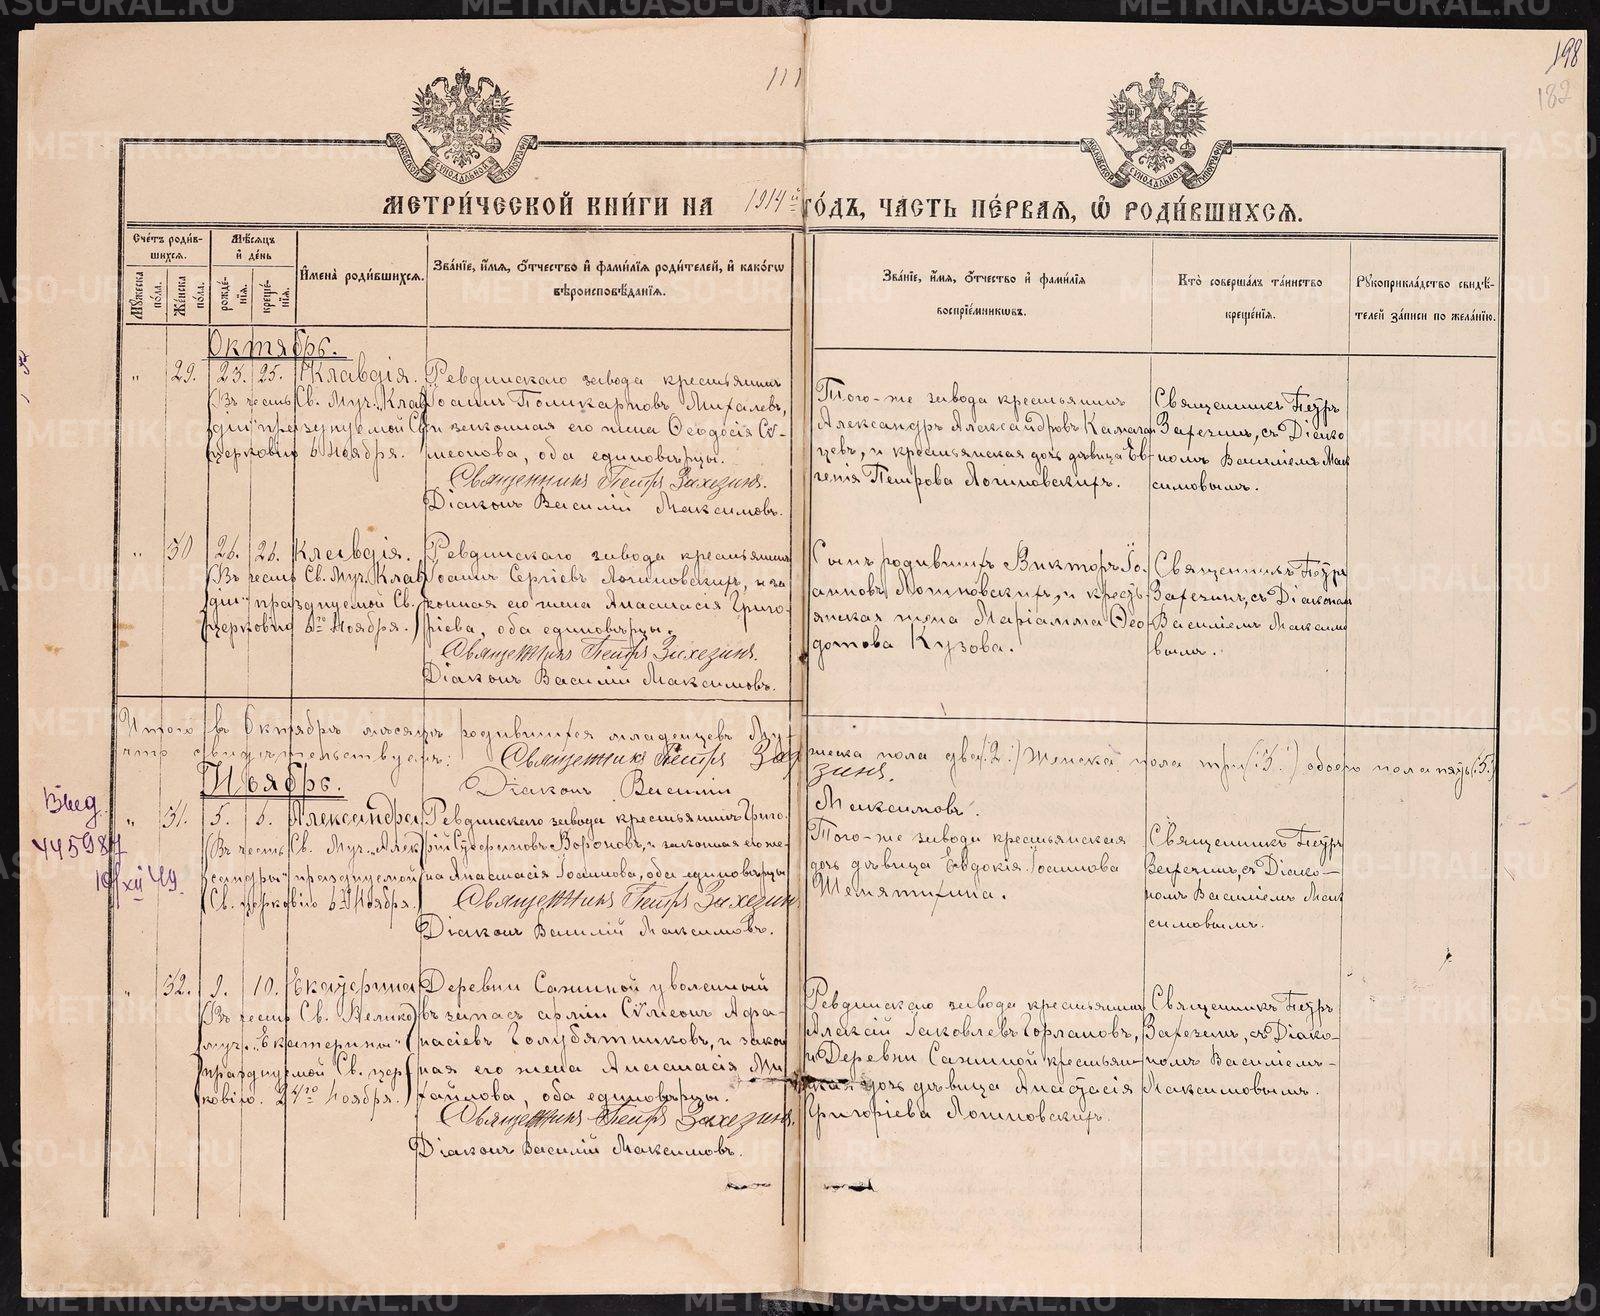 111
198
182
МЕТРИ́ЧЕСКОЙ КНИ́ГИ НА 1914й ГО́ДЪ, ЧАСТЬ ПЕ́РВАЯ, Ѡ҆ РОДИ́ВШИХСЯ.
Сче́тъ роди́в-
шихся.
Мѣ́сяцъ
и҆ де́нь
Мꙋ́жеска по́ла.
Же́нска по́ла.
рожде́-
нїя.
креще́-
нїя.
И҆мена̀ роди́вшихся.
Зва́нїе, и҆́мя, ѻ҆́тчество и҆ фами́лїя роди́телей, и҆ како́гѡ
вѣроисповѣ́данїя.
Зва́нїе, и҆́мя, ѻ҆́тчество и҆ фами́лїя
воспрїе́мникѡвъ.
Кто̀ соверша́лъ та́инство
креще́нїя.
Рꙋкоприкла́дство свидѣ́-
телей за́писи по жела́нїю.
Октябрь.
„ 29. 23. 25. Клавдія.
(Въ честь Св. Муч. „Клав
діи" празднуемой Св.
церковію 6 Ноября.
Ревдинскаго завода крестьянинъ
Іоаннъ Поликарповъ Михалевъ,
и законная его жена Ѳеодосія Сѵ-
меонова, оба единовѣрцы.
Священникъ Петръ Захезинъ.
Діаконъ Василій Максимовъ.
Того-же завода крестьянинъ
Александръ Александровъ
цевъ, и крестьянская дочь дѣвица Ев-
генія Петрова Логиновскихъ.
Священникъ Петръ
Захезинъ, съ Діако
номъ Василіемъ Мак
симовымъ.
„ 30 26. 26. Клавдія.
(Въ честь Св. Муч. Клав
діи" празднуемой Св.
церковію 6го Ноября.)
Ревдинскаго завода крестьянинъ
Іоаннъ Сергіевъ Логиновскихъ, и за
конная его жена Анастасія Григо-
ріева, оба единовѣрцы.
Священникъ Петръ Захезинъ.
Діаконъ Василій Максимовъ.
Сынъ родившихъ Викторъ Іо-
анновъ Логиновскихъ, и кресть-
янская жена Маріамна Ѳео-
дотова Кузова.
Священникъ Петръ
Захезинъ, съ Діакономъ
Василіемъ Максимо
вымъ.
Итого въ Октябрѣ мѣсяцѣ родившихся младенцевъ Му-
жеска пола два (:2:) Женска пола три (:3:) обоего пола пять (:5:)
что свидѣтельствуемъ: Священникъ Петръ Захе
зинъ.
Діаконъ Василій
Максимовъ.
Ноябрь.
Выд.
445987
19/XII 49.
„ 31. 5. 6. Александра
(Въ честь Св. Муч. „Алек
сандры" празднуемой
Св. церковію 6го Ноября.)
Ревдинскаго завода крестьянинъ Григо-
рій Стефановъ Вороновъ, и законная его же-
на Анастасія Іоаннова, оба единовѣрцы
Священникъ Петръ Захезинъ
Діаконъ Василій Максимовъ.
Того-же завода крестьянская
дочь дѣвица Евдокія Іоаннова
Шемятихина.
Священникъ Петръ
Захезинъ, съ Діако-
номъ Василіемъ Мак
симовымъ.
„ 32. 9. 10. Екатерина
(Въ честь Св. Велико
муч. „Екатерины"
празднуемой Св. цер
ковію. 24го Ноября.)
Деревни Сажиной уволенный
въ запасъ арміи Сѵмеонъ Афа-
насіевъ Голубятниковъ, и закон
ная его жена Анастасія Ми-
хайлова, оба единовѣрцы.
Священникъ Петръ Захезинъ.
Діаконъ Василій Максимовъ.
Ревдинскаго завода крестьянинъ
Алексій Іаковлевъ Горлановъ,
и Деревни Сажиной крестьян-
ская дочь дѣвица Анастасія
Григоріева Логиновскихъ.
Священникъ Петръ
Захезинъ, съ Діако-
номъ Василіемъ
Максимовымъ.